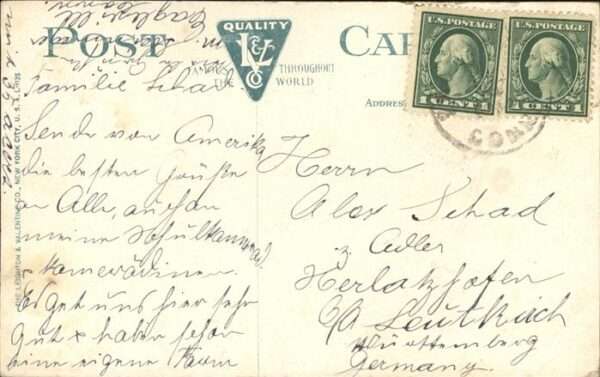 POST CARD
QUALITY
L & V
CO
KNOWN THROUGHOUT
THE WORLD
U.S. POSTAGE
1 CENT 1
U.S. POSTAGE
1 CENT 1
CONN
ADDRESS
THE LEIGHTON & VALENTINE CO., NEW YORK CITY, U. S. A.
Familie Schad.
Sende von Amerika
die besten Grüße
an Alle, auch an
meine Schulkamerad.
- Kamerädinen.
Es get uns hier sehr
gut & haben schon
eine eigene Farm
Eagleville
Conn.
Herrn
Alex Schad
z. Adler
Herlatzhofen
O/A Leutkirch
Württemberg
Germany.